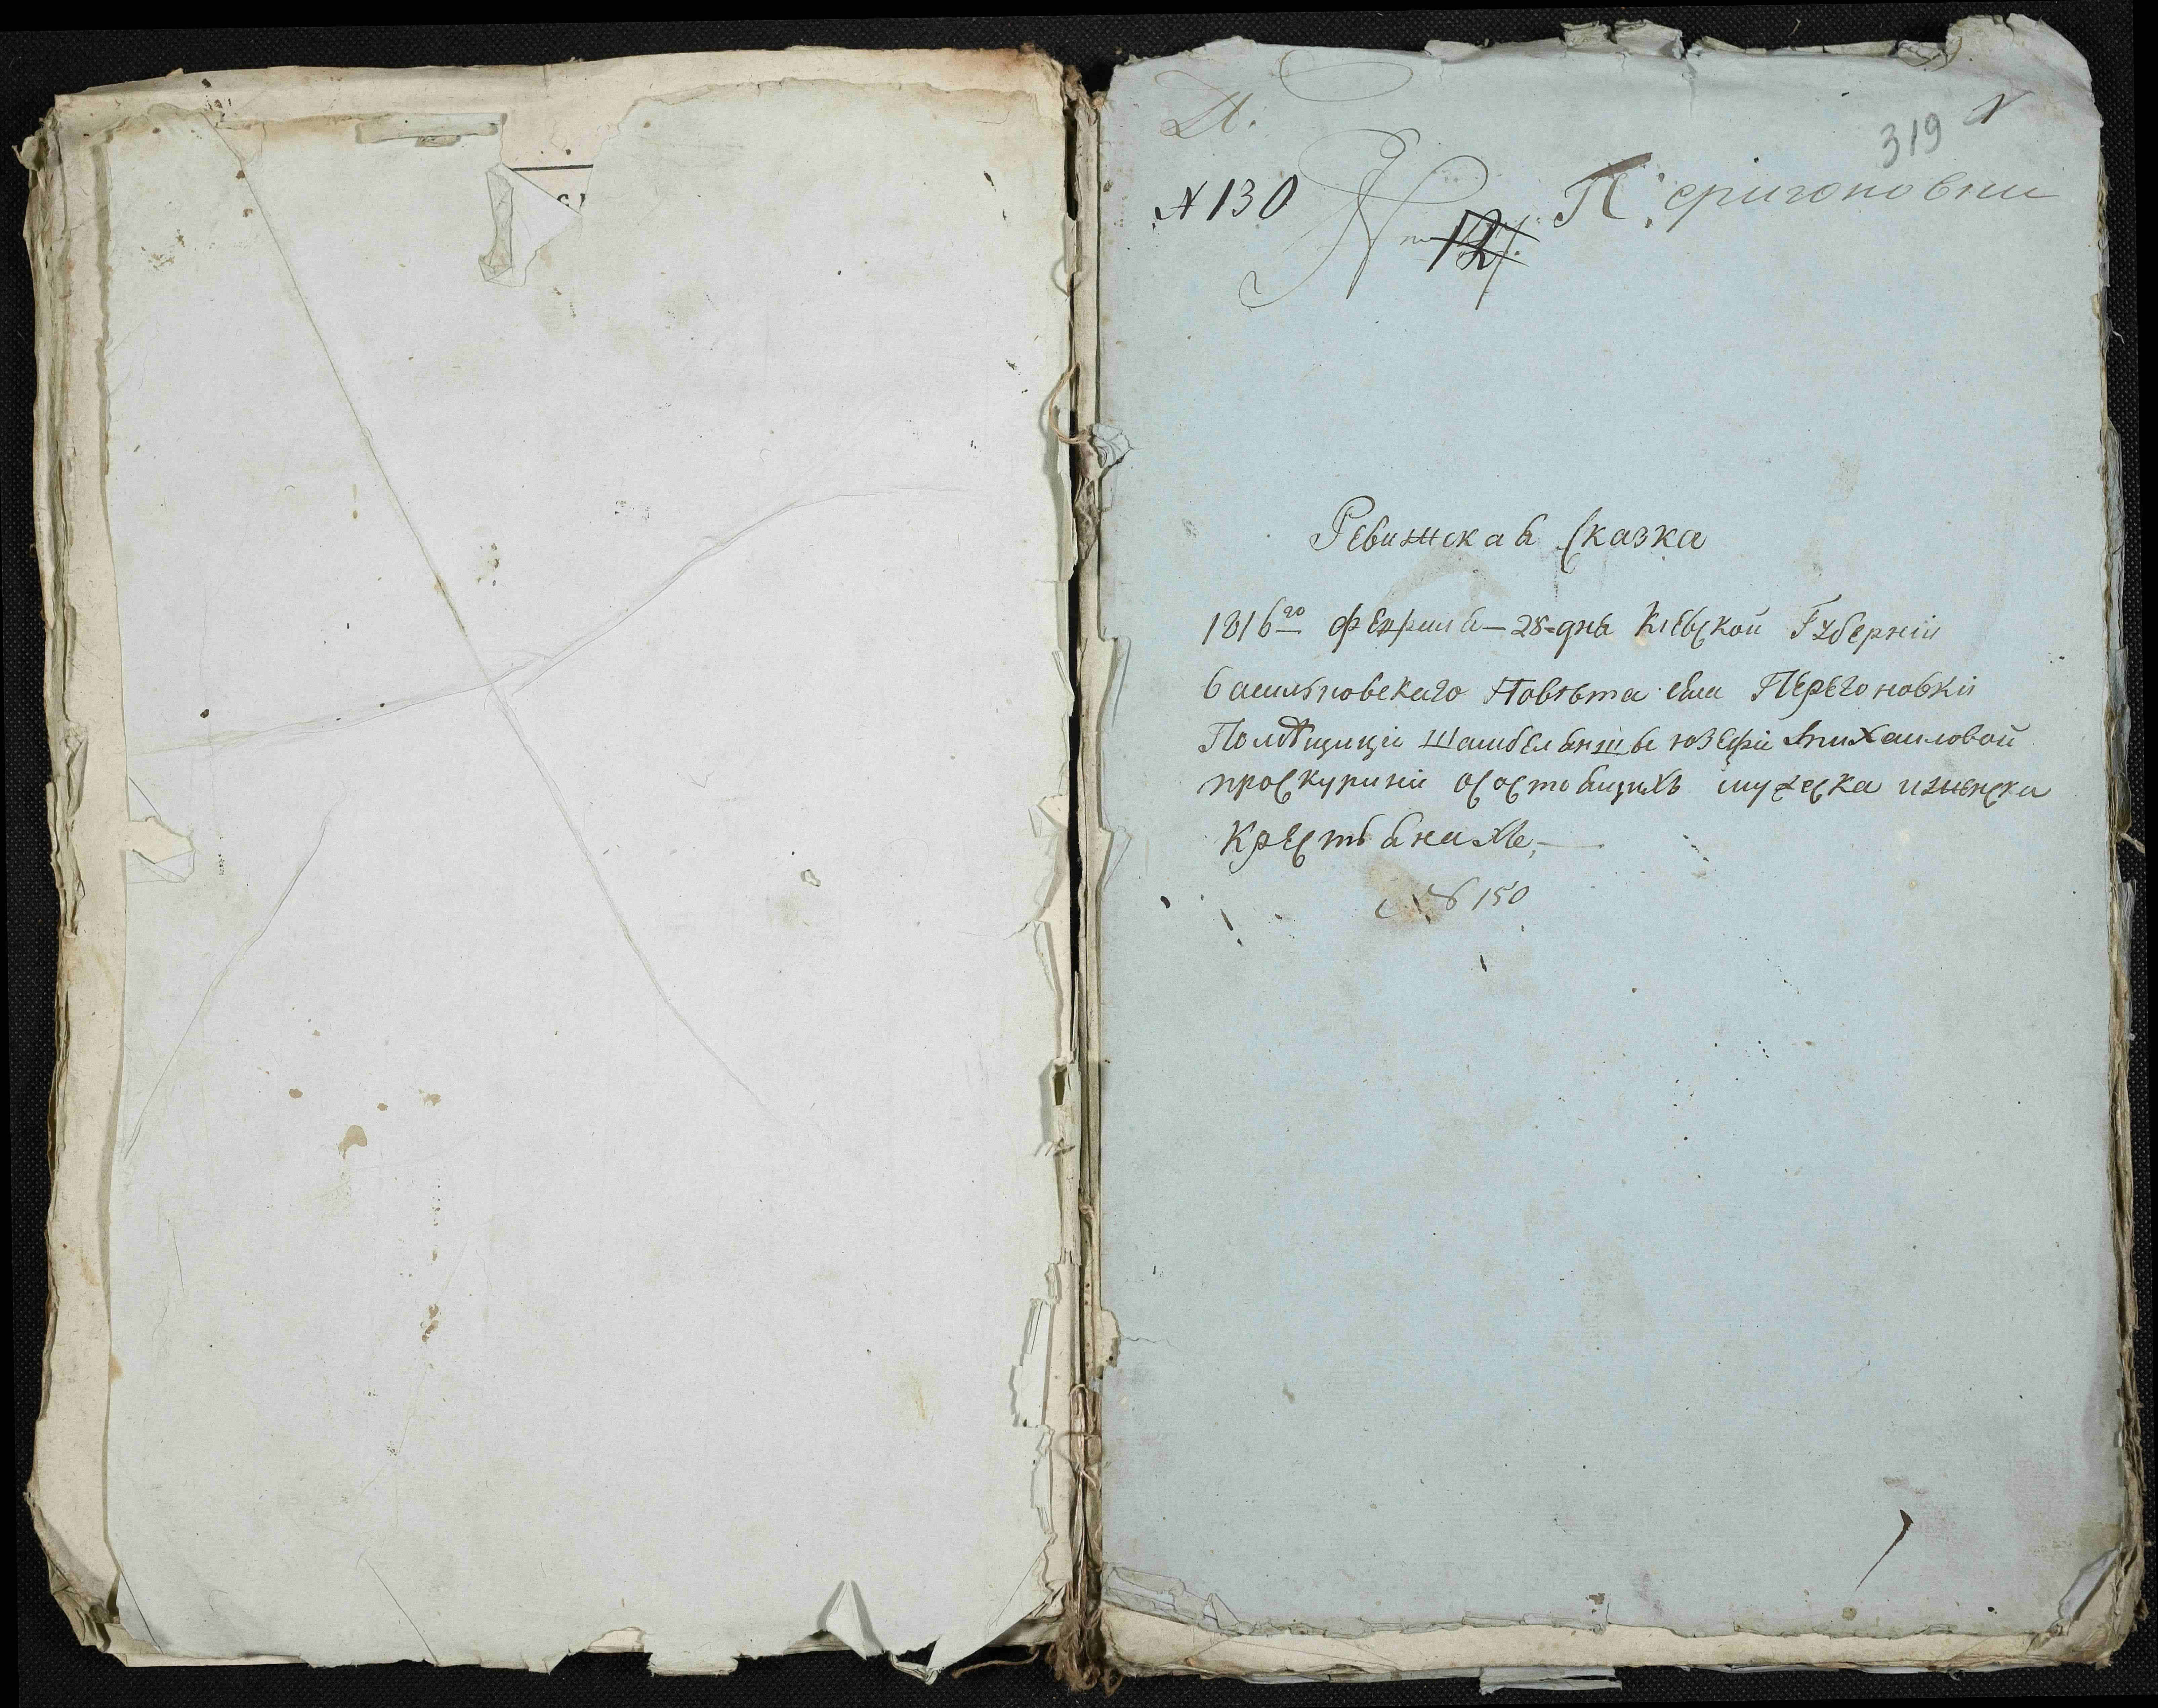 Д.
319
№ 130
№ 127
К. Перигоновки
Ревижская Сказка
1816го февраля 28 дня Киевской Губерніи
Васильковскаго Повѣта села Перегоновки
Помѣщицы Шамбелянши Юзефи Михаиловой
проскуриній о состоящихъ мужеска и женска
Крестьянахъ
№ 150